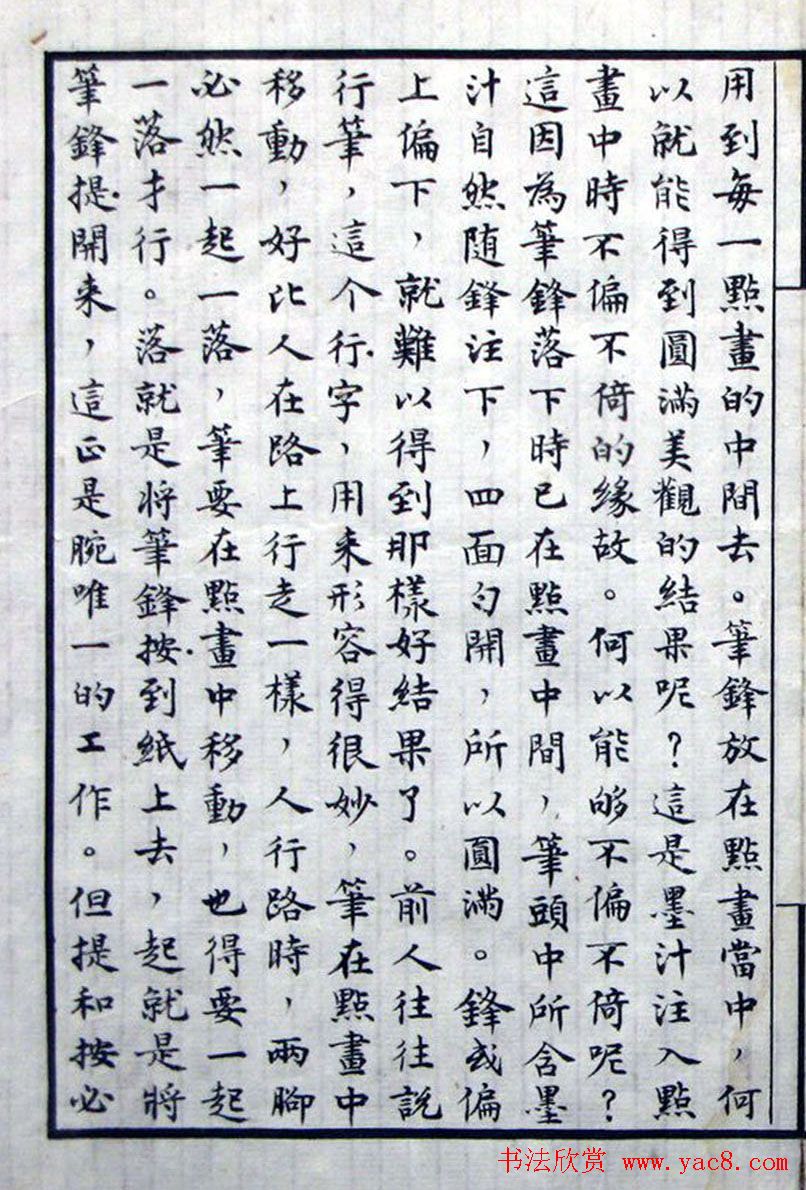 用到每一點畫的中間去。筆鋒放在點畫當中，何
以就能得到圓滿美觀的結果呢？這是墨汁注入點
畫中時不偏不倚的緣故。何以能够不偏不倚呢？
這因為筆鋒落下時已在點畫中間，筆頭中所含墨
汁自然随鋒注下，四面匀開，所以圓滿。鋒或偏
上偏下，就難以得到那樣好結果了。前人往往説
行筆，這个行字，用来形容得很妙，筆在點畫中
移動，好比人在路上行走一樣，人行路時，兩腳
必然一起一落，筆要在點畫中移動，也得要一起
一落才行。落就是将筆鋒按到紙上去，起就是將
筆鋒提開来，這正是腕唯一的工作。但提和按必
书法欣赏 www.yac8.com